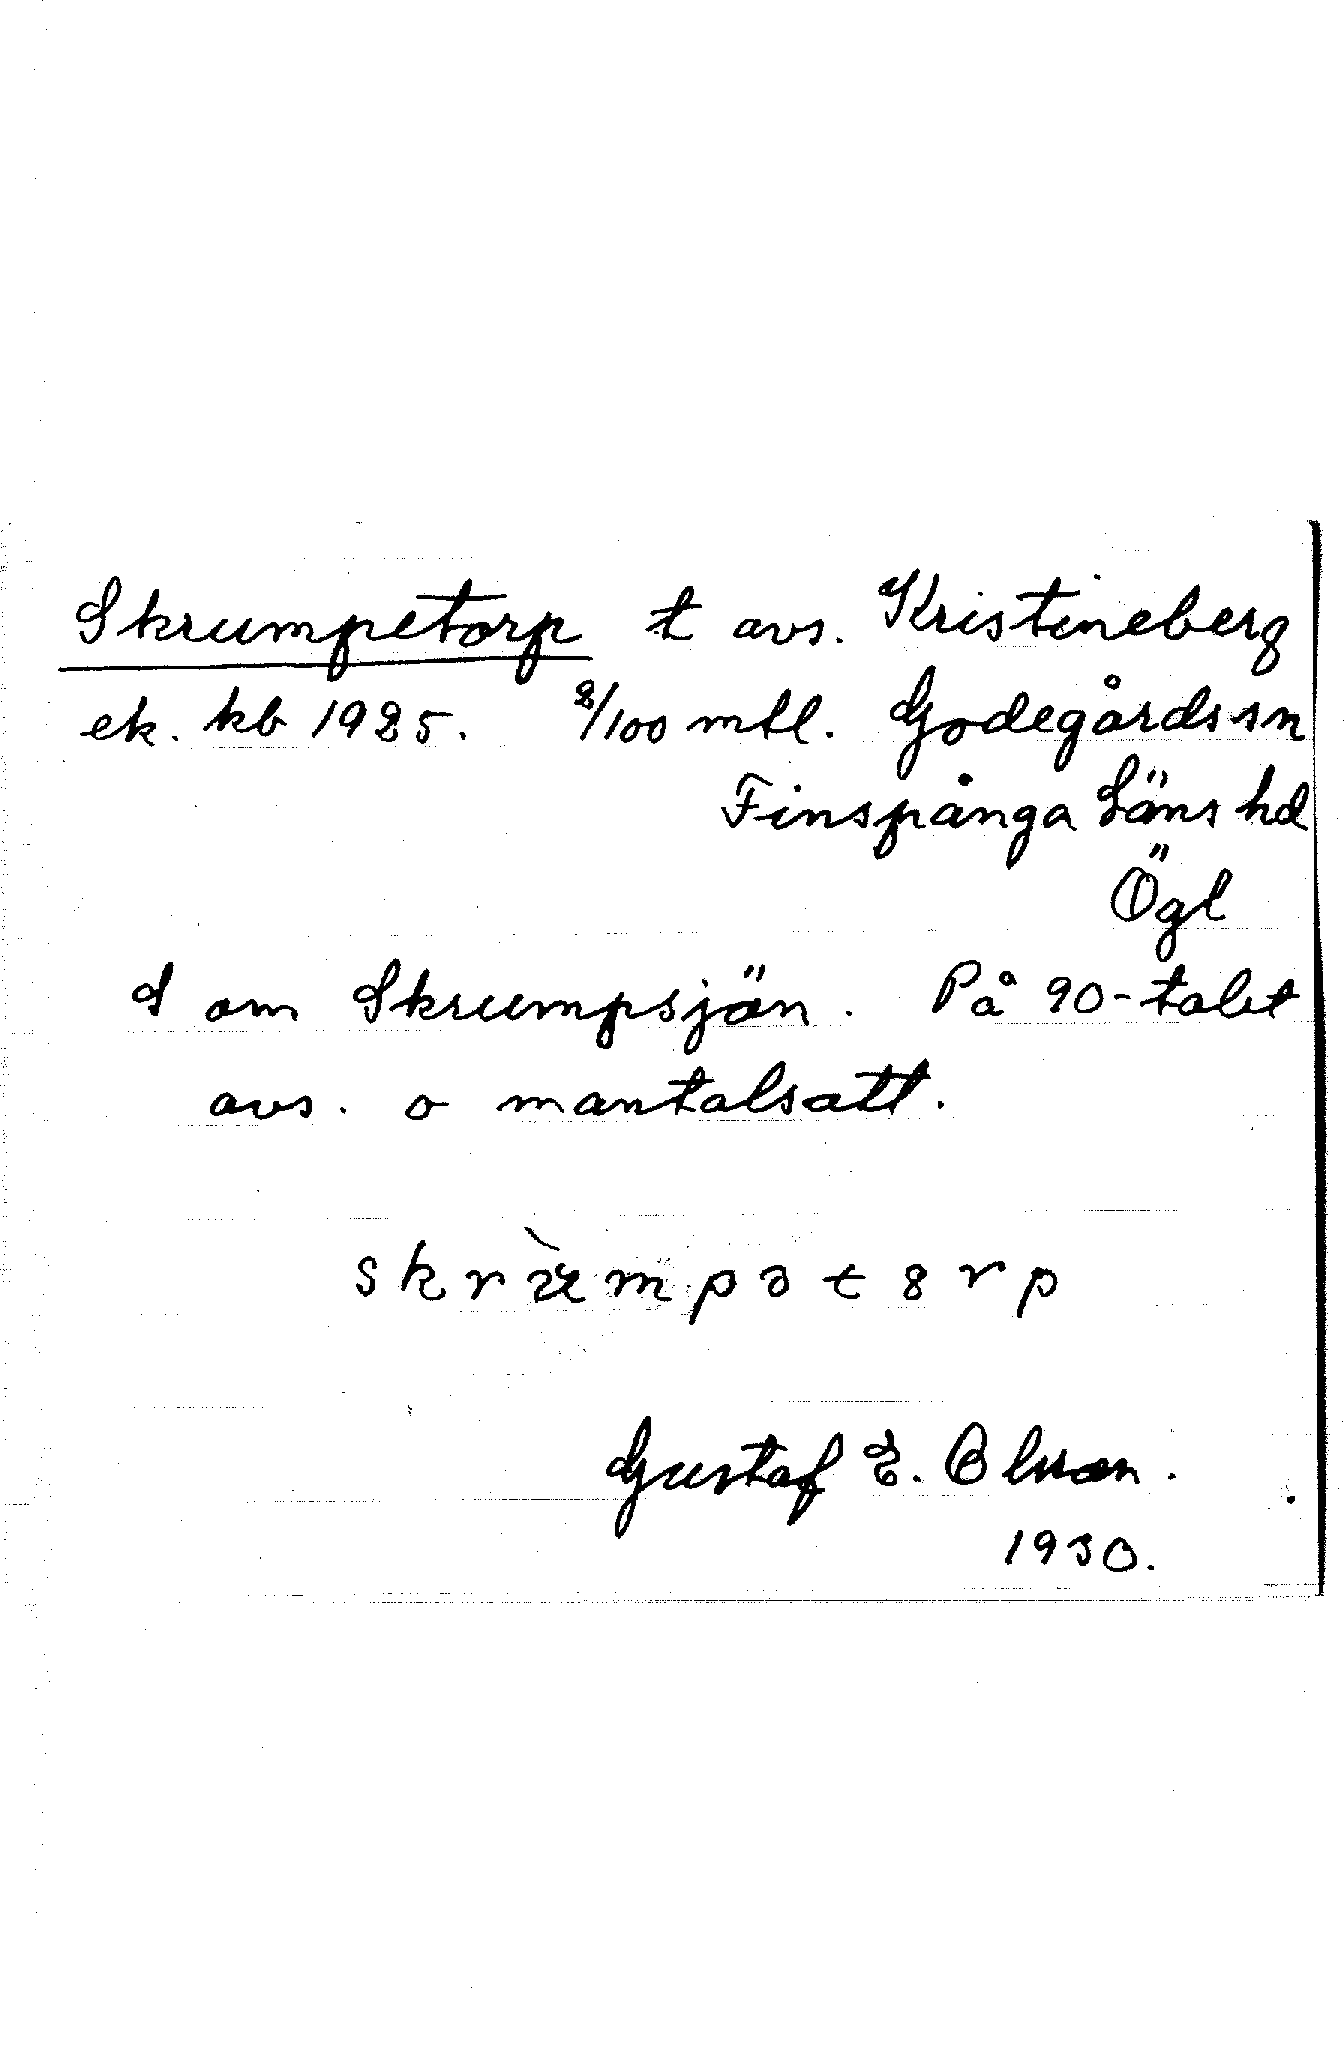 Skrumpetorp t avs. Kristineberg
ek. kb 1925. 2/100 mtl. Godegårds sn
Finspånga Läns hd
Ögl
S om Skrumpsjön. På 90-talet
avs. o mantalsatt.
Gustaf E. Olsson.
1930.